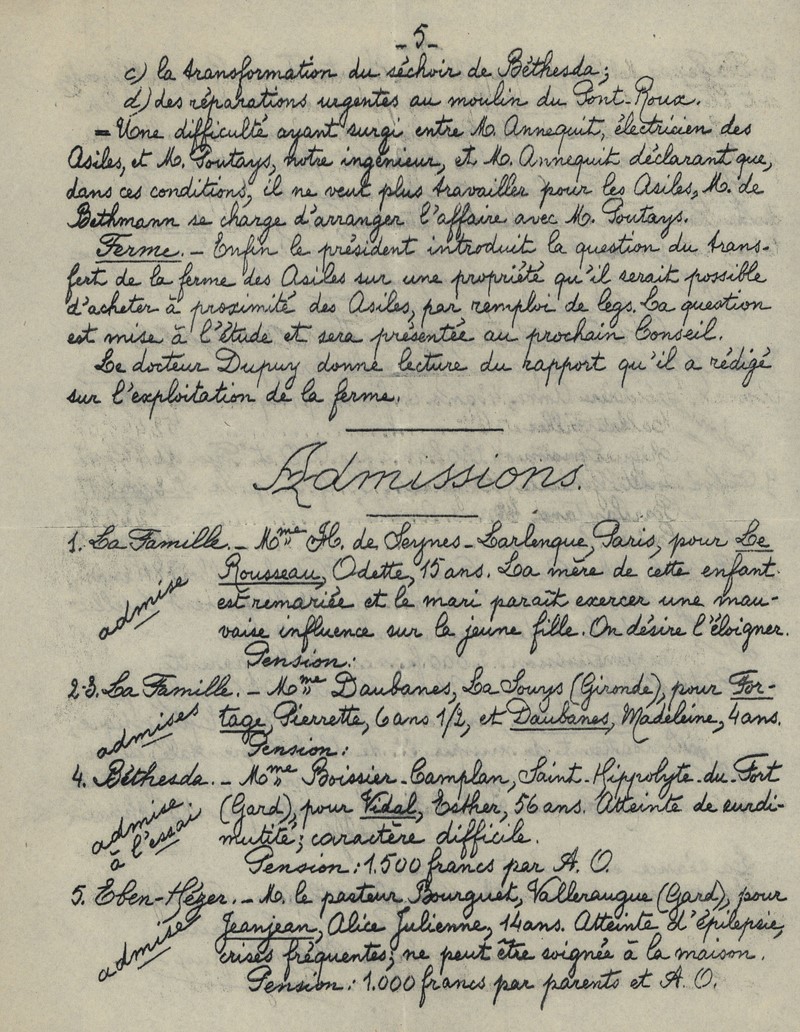 - 5 -
c) la transformation du séchoir de Béthesda;
d) des réparations urgentes au moulin du Pont-Roux.
= Une difficulté ayant surgi entre M. Annequit, électricien des
Asiles, et M. Poutays, notre ingénieur, et M. Annequit déclarant que,
dans ces conditions, il ne veut plus travailler pour les Asiles, M. de
Bethmann se charge d'arranger l'affaire avec M. Poutays.
Ferme. - Enfin le président introduit la question du trans-
fert de la ferme des Asiles sur une propriété qu'il serait possible
d'acheter à proximité des Asiles, par remploi de legs. La question
est mise à l'étude et sera présentée au prochain Conseil.
Le docteur Dupuy donne lecture du rapport qu'il a rédigé
sur l'exploitation de la ferme.
Admissions.
1. La Famille. - Mme H. de Seynes-Larlenque, Paris, pour Le
Rousseau, Odette, 15 ans. La mère de cette enfant
est remariée et le mari paraît exercer une mau-
vaise influence sur la jeune fille. On désire l'éloigner.
Pension:
admise
2-3. La Famille. - Mme Daubanes, La Souys (Gironde), pour For-
tage, Pierrette, 6 ans 1/2, et Daubanes, Madeleine, 4 ans.
Pension:
admises
4. Béthesda. - Mme Boissier-Camplan, Saint-Hippolyte-du-Fort
(Gard), pour Vidal, Esther, 56 ans. Atteinte de surdi-
mutité; caractère difficile.
Pension: 1.500 francs par A. O.
admise
à l'essai
5. Eben-Hézer. - M. le pasteur Bourguet, Valleraugue (Gard), pour
Jeanjean, Alice Julienne, 14 ans. Atteinte d'épilepsie,
crises fréquentes; ne peut être soignée à la maison.
Pension: 1.000 francs par parents et A. O.
admise